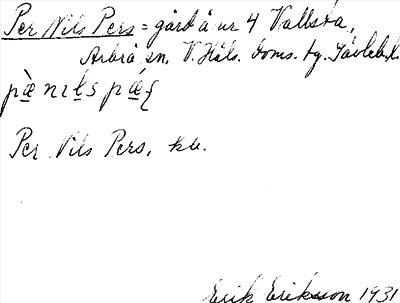 Per Nils Pers = gård å nr 4 Vallsta,
Arbrå sn, V. Häls. doms. tg. Gävleb. l.
Per Nils Pers, kb.
Erik Eriksson 1931